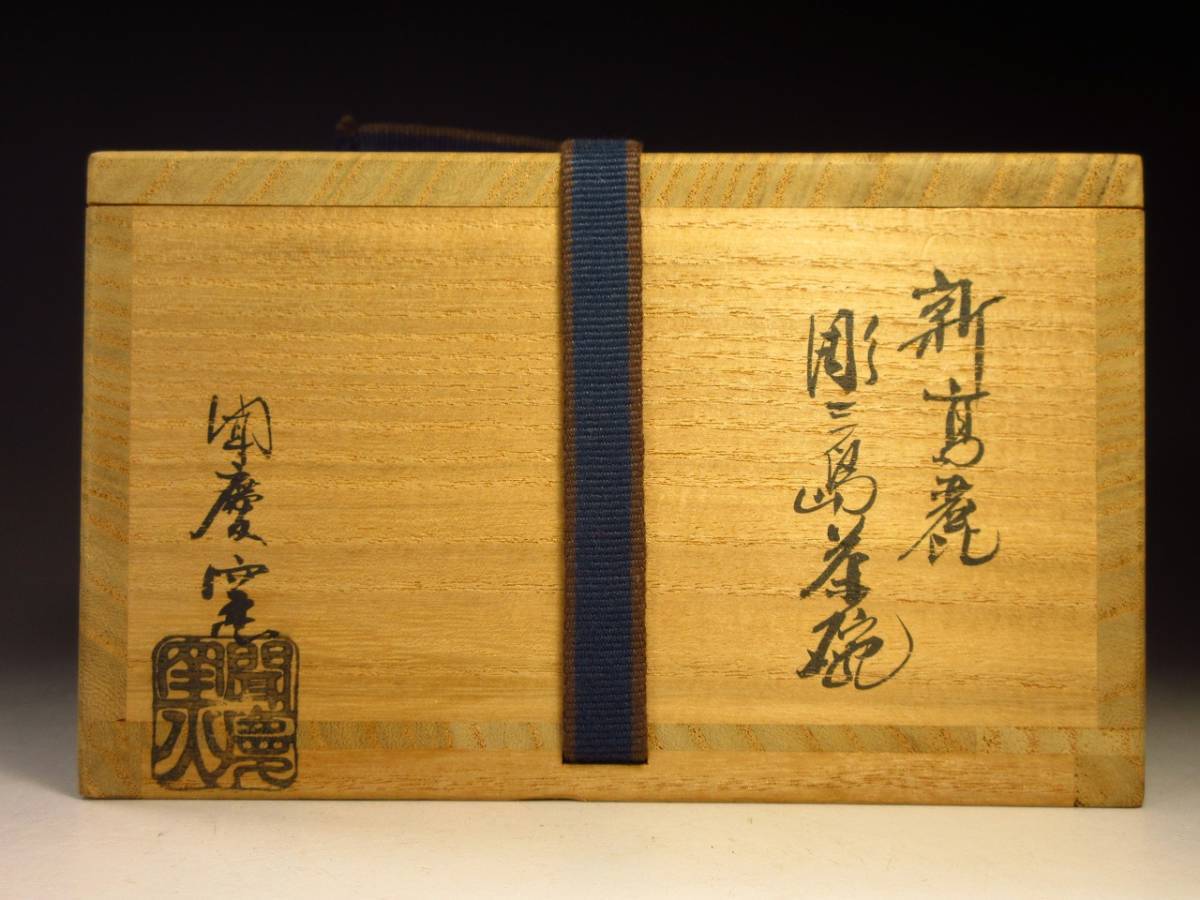 新高麗
彫三島茶碗
聞慶窯
聞慶窯